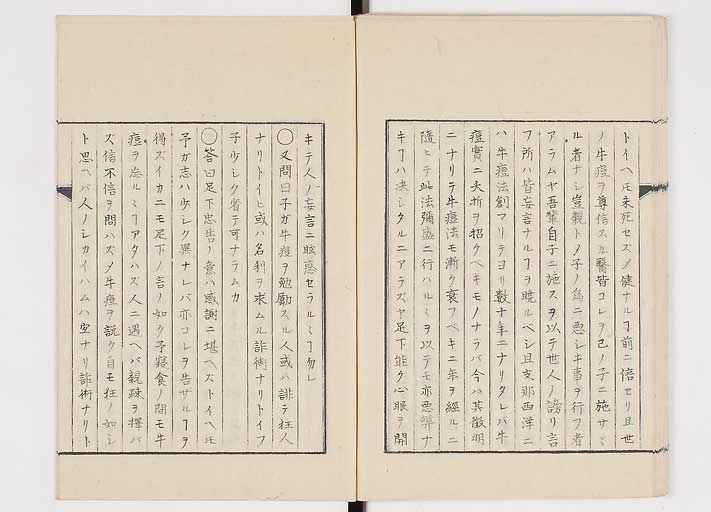 トイヘㇳモ未死セズメ健ナルヿ前ニ倍セリ且世
ノ牛痘ヲ尊信スル醫皆コレヲ己ノ子ニ施サミ
ル者ナシ豈親トノ子ノ為ニ悪シキ事ヲ行フ者
アラムヤ吾輩自子ニ施スヲ以テ世人ノ謗リ言
フ所ハ皆妄言ナルヿヲ曉ルベシ且支那西洋ニ
ハ牛痘法創マリテヨリ数十年ニナリタレバ牛
痘實ニ夭折ヲ招クベキモノナラバ今ハ其徴明
ニナリテ牛痘法モ漸ク衰フベキニ年ヲ經ルニ
隨ヒテ此法彌盛ニ行ハルヽヲ以テモ亦悪弊ナ
キヿハ决シタルニアラズヤ足下能ク心眼ヲ開
キテ人ノ妄言ニ眩惑セラルヽヿ勿レ
〇又問曰子ガ牛痘ヲ勉勵スル人或ハ誹テ狂人
ナリトイヒ或ハ名利ヲ求ムル詐術ナリトイフ
子少シク省テ可ナラムカ
〇答曰足下忠告ノ意ハ感謝ニ堪ヘズトイヘㇳモ
予ガ志ハ少シク異ナレバ亦コレヲ告ザルヿヲ
得ズイカニモ足下ノ言ノ如ク予寝食ノ間モ牛
痘ヲ忘ルヽヿアタハズ人ニ遇ヘバ親疎ヲ擇バ
ズ信不信ヲ問ハズメ牛痘ヲ説ク自モ狂ノ如シ
ト思ヘバ人ノシカイハムハ空ナリ詐術ナリト